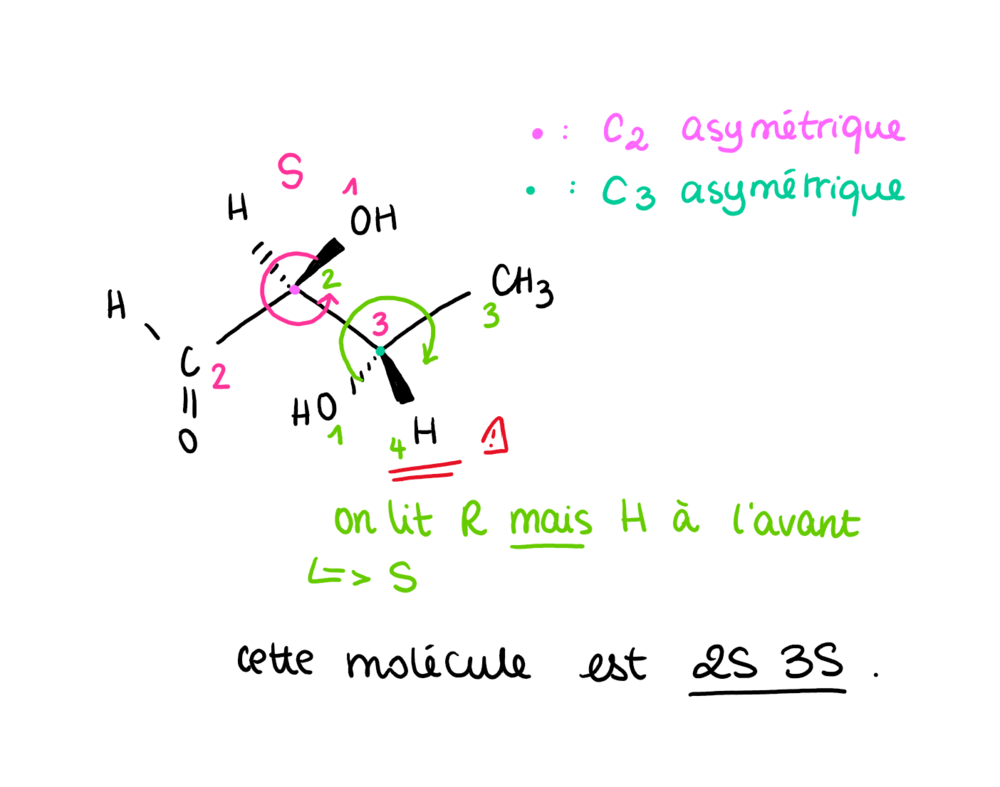 • : C2 asymétrique
• : C3 asymétrique
S
1
H
OH
2
CH3
3
3
H
C
2
O
HO
1
4
H
!
on lit R mais H à l'avant
<=> S
cette molécule est 2S 3S.